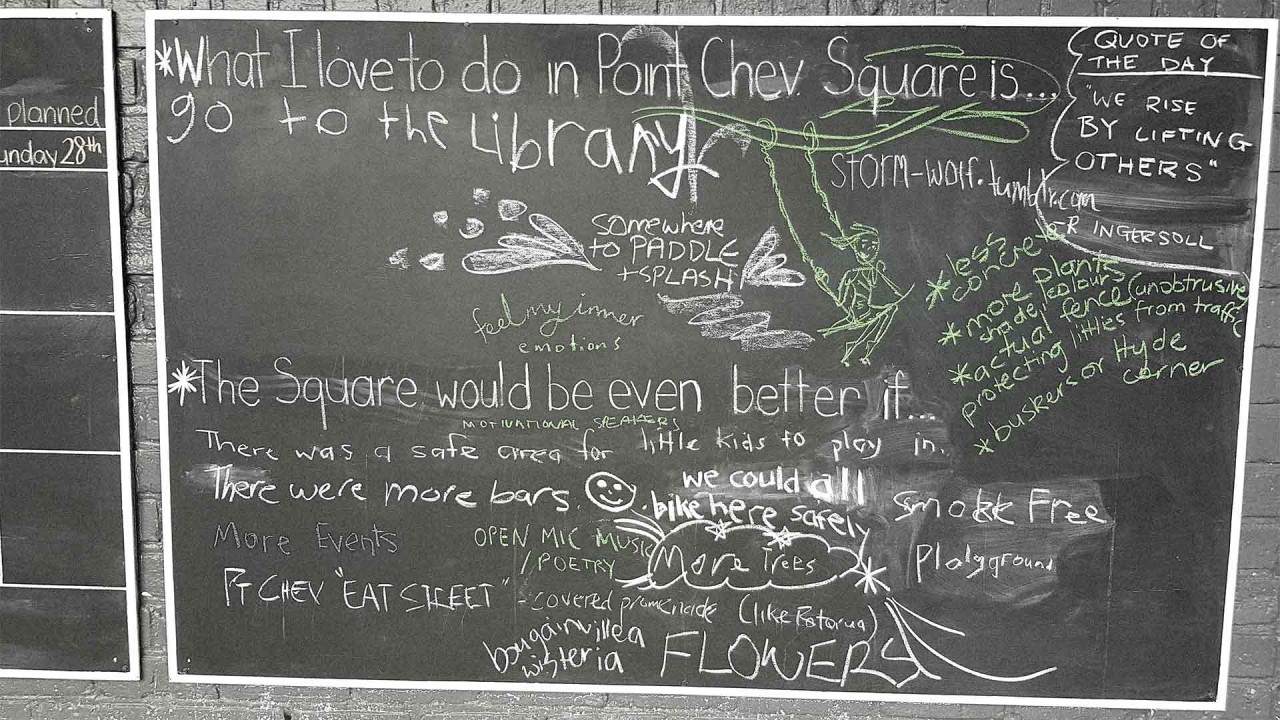 planned
unday 28th
*What I love to do in Point Chev. Square is...
go to the Library
storm-wolf.tumblr.com
QUOTE OF
THE DAY
"WE RISE
BY LIFTING
OTHERS"
R INGERSOLL
somewhere
to PADDLE
+SPLASH!
feel my inner
emotions
*less
concrete
*more plants
shade/colour
*actual fence (unobtrusive
protecting littles from traffic
*buskers or Hyde
corner
*The Square would be even better if...
MOTIVATIONAL SPEAKERS
There was a safe area for little kids to play in.
There were more bars.
we could all
bike here safely
Smoke Free
More Events
OPEN MIC MUSIC
/POETRY
More Trees
*
Playground
PT CHEV "EAT STREET"
-covered promenade (like Rotorua)
bougainvillea
wisteria
FLOWERS